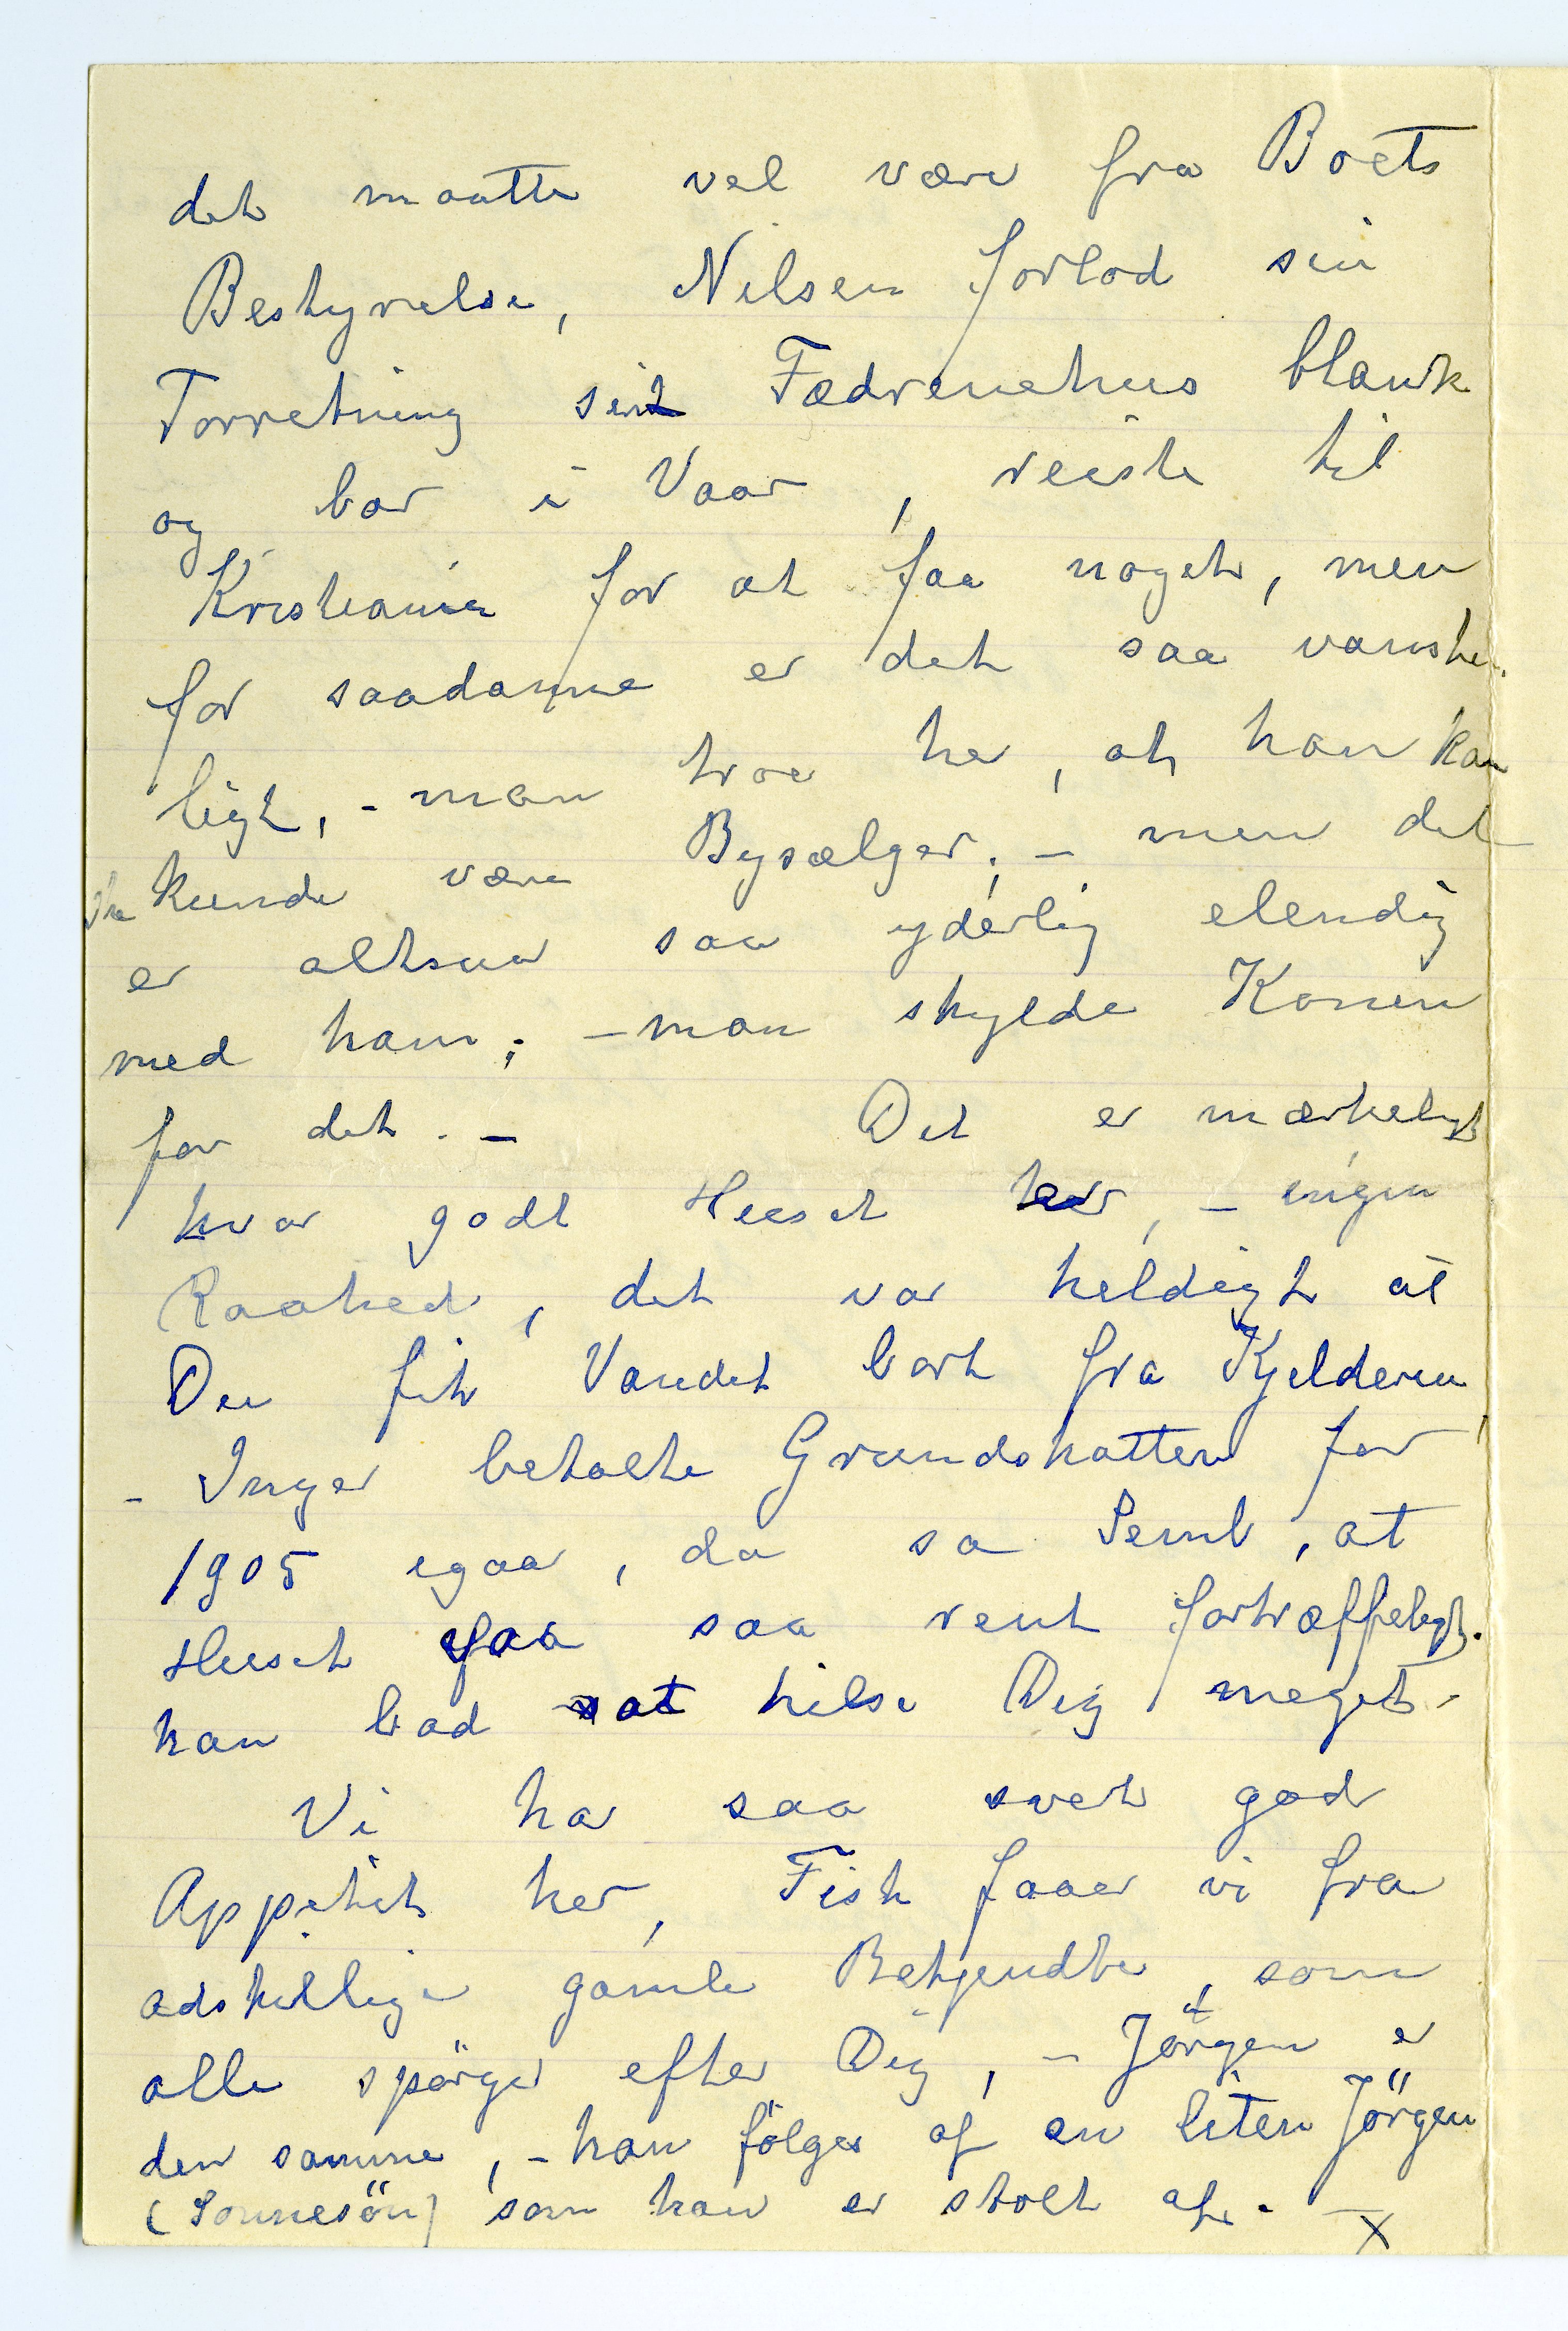 det maatte vel være fra Boets
Bestyrelse, Nilsen forlod sin
Forretning sit Fædrenehus blank
og bar i Vaar, reiste til
Kristiania for at faa noget, men
for saadanne er det saa vanske-
ligt, - man troe her, at han kan
kunde være Bysælger; - men det
er altsaa saa yderlig elendig
med ham; - man skylde Konen
for det. - Det er mærkeligt
hvor godt Huset er, - ingen
Raahed, det var heldigt at
Du fik Vandet bort fra Kjelderen,
- Inger betalte Grundskatten for
1905 igaar, da sa Semb, at
Huset saa saa rent fortræffeligt.
han bad at hilse Dig meget -
Vi har saa svert god
Appetit her, Fisk faaer vi fra
adskillige gamle Bekjendte, som
alle spörger efter Dig, - Jörgen er
den samme, - han fölges af en liten Jörgen
(Sonnesön) som han er stolt af. - x